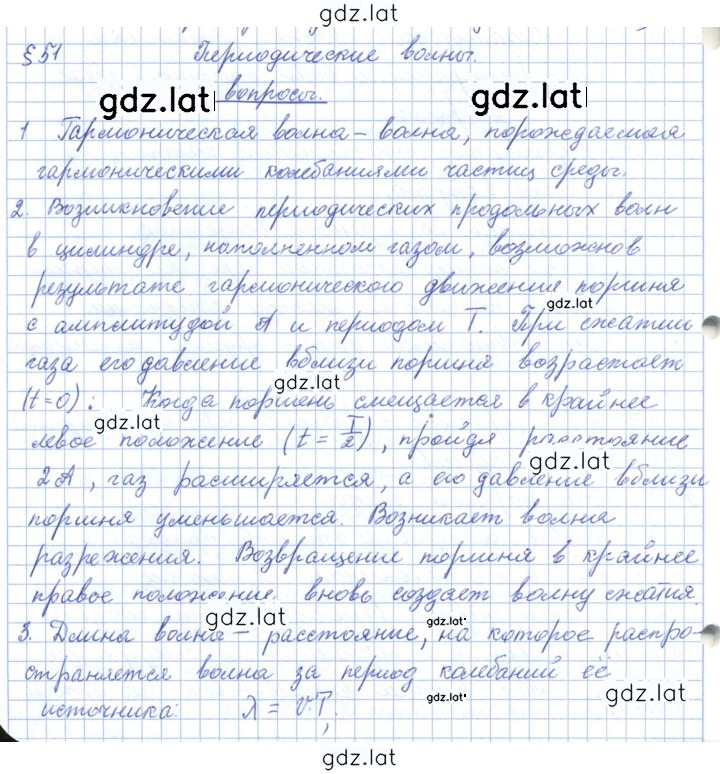 gdz.lat
§51 Периодические волны.
gdz.lat вопросы. gdz.lat
1 Гармоническая волна – волна, порождаемая
гармоническими колебаниями частиц среды.
2. Возникновение периодических продольных волн
в цилиндре, наполненном газом, возможно в
результате гармонического движения поршня
gdz.lat
с амплитудой А и периодом Т. При сжатии
газа его давление вблизи поршня возрастает
gdz.lat
(t=0): Когда поршень смещается в крайнее
gdz.lat
левое положение (t = T/2), пройдя расстояние
gdz.lat
2А, газ расширяется, а его давление вблизи
поршня уменьшается. Возникает волна
разрежения. Возвращение поршня в крайнее
правое положение вновь создает волну сжатия.
gdz.lat gdz.lat
3. Длина волны – расстояние, на которое распро-
страняется волна за период колебаний её
источника: λ = v·T,
gdz.lat gdz.lat
gdz.lat